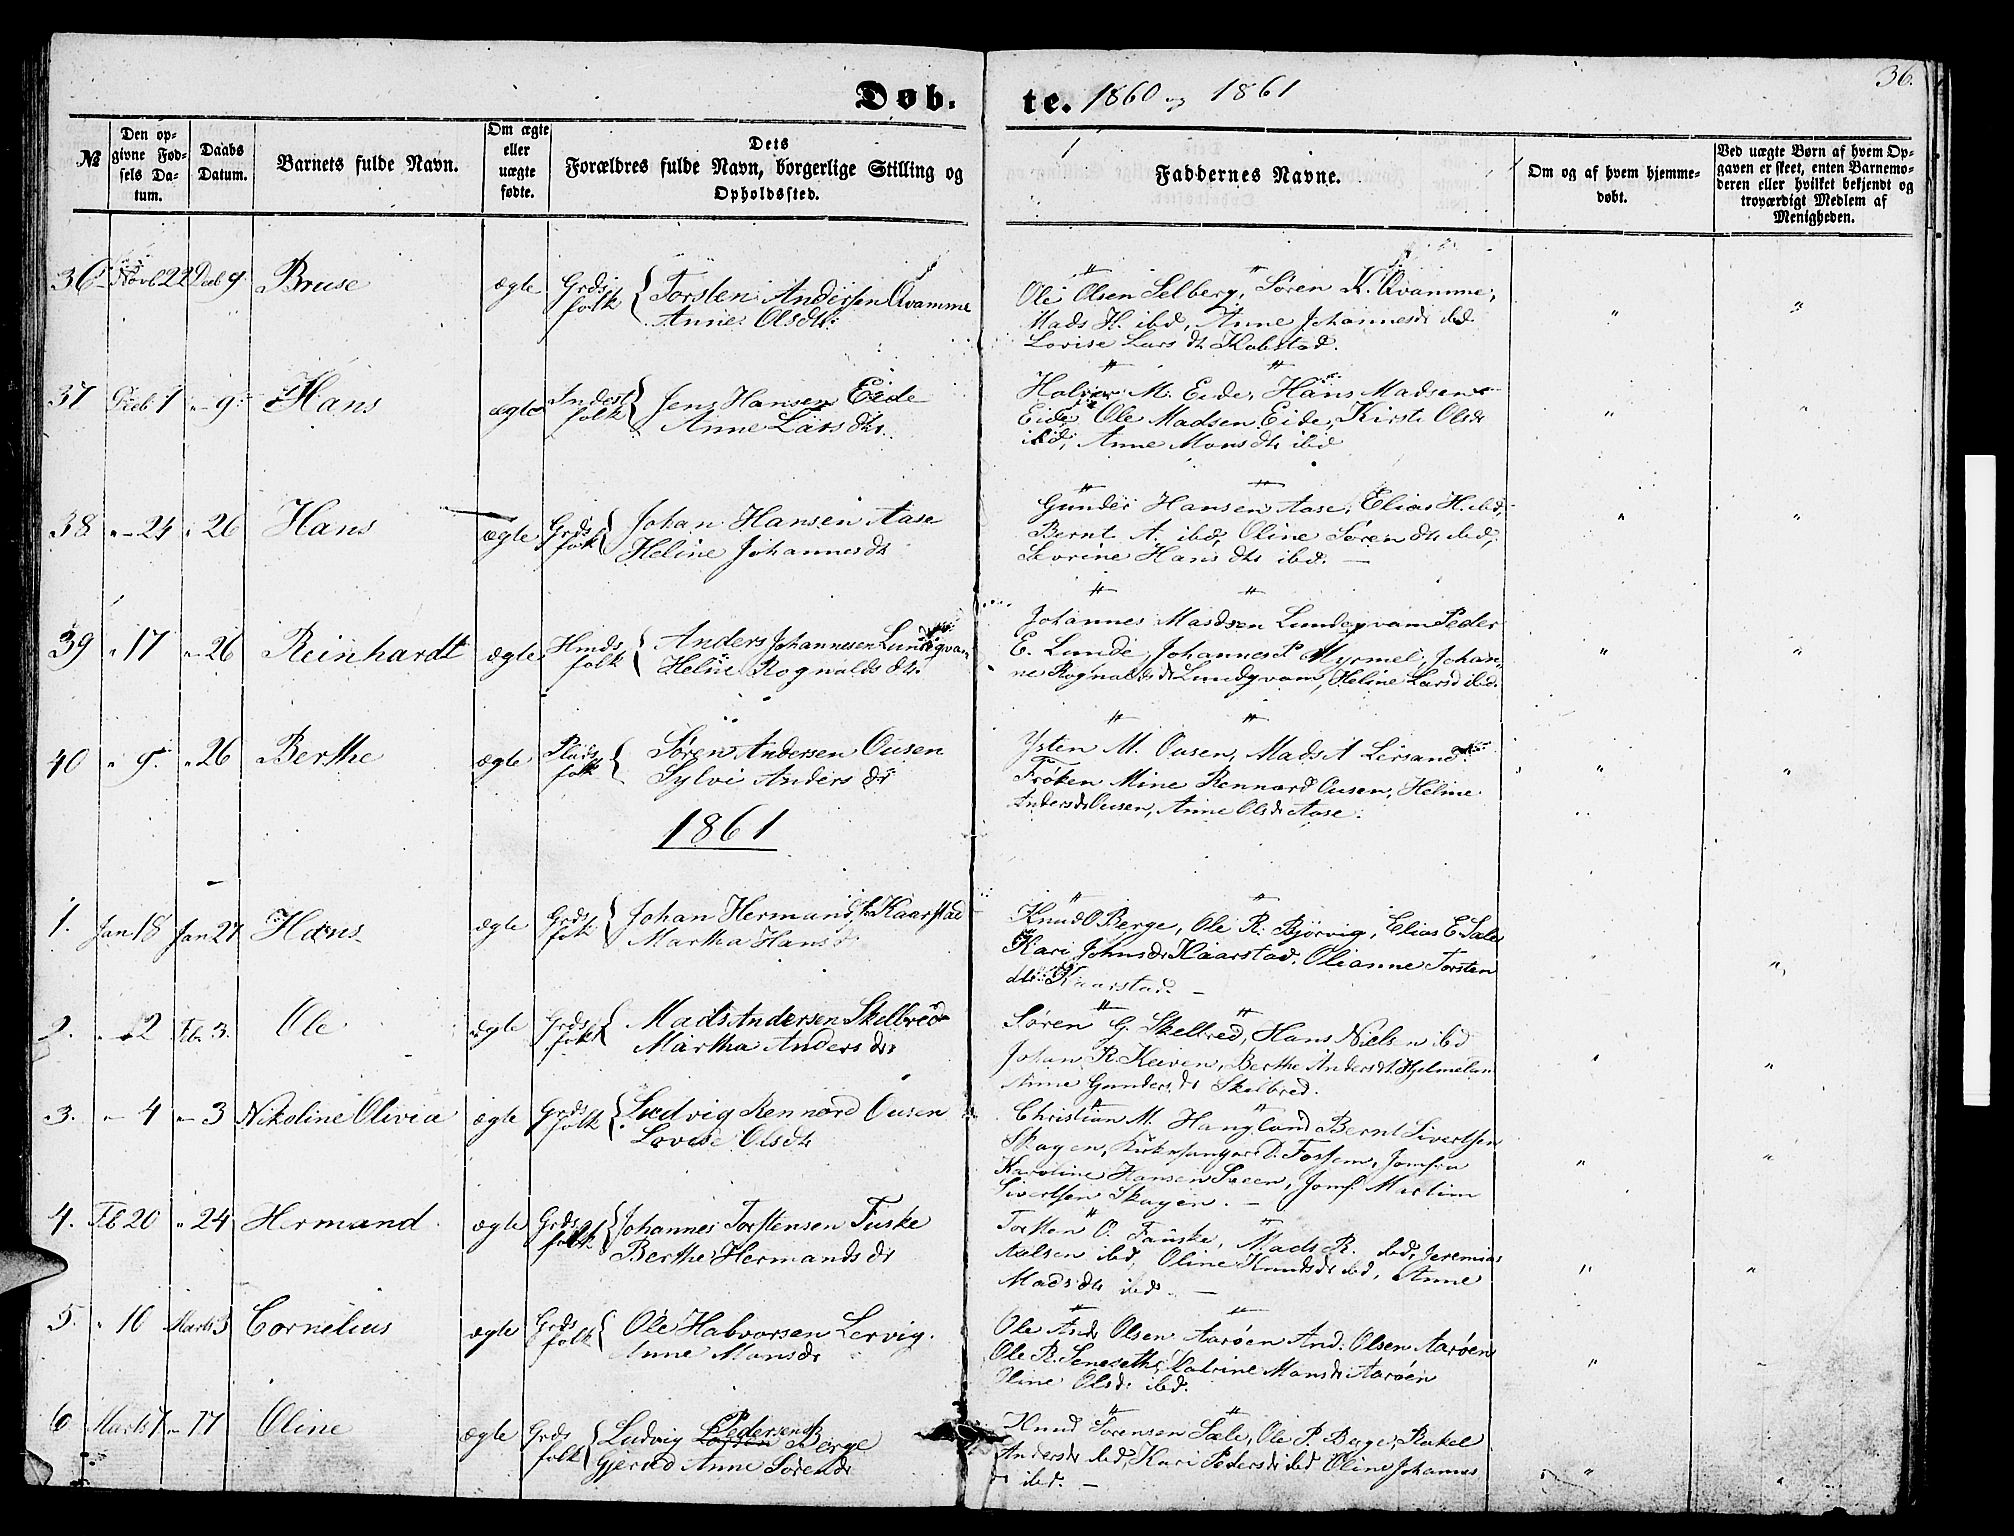 36.
Døb. te. 1860 og 1861
№
Den op-
givne Fød-
sels Da-
tum.
Daabs
Datum.
Barnets fulde Navn.
Om ægte
eller
uægte
fødte.
Dets
Forældres fulde Navn, borgerlige Stilling og
Opholdssted.
Faddernes Navne.
Om og af hvem hjemme-
døbt.
Ved uægte Børn af hvem Op-
gaven er skeet, enten Barnemo-
deren eller hvilket bekjendt og
troværdigt Medlem af
Menigheden.
36 Novb 22 Deb 9 Bruse ægte Grds folk { Torsten Andersen Qvamme
Anne Olsdtr
Ole Olsen Selberg, Søren K. Qvamme,
Mads H. ibd, Anne Johannesdr ibd
Lovise Lars dt Kobstad. " "
37 Deb 7 " 9 Hans ægte Indest folk { Jens Hansen Eide
Anne Lars dtr.
Halvor M. Eide, Hans Madsen
Eide, Ole Madsen Eide, Kirsti Olsdr
ibid, Anne Mons dtr ibid " "
38 " 24 " 26 Hans ægte Grds folk { Johan Hansen Aase
Heline Johannesdt
Gunder Hansen Aase, Elias H. ibd,
Bernt A. ibd, Oline Sørendtr ibd,
Severine Hans dtr ibd. — " "
39 " 17 " 26 Reinhardt ægte Hmds folk { Anders Johannesen Lundeqvam
Heline Rognalds dtr.
Johannes Madsen Lundeqvam Peder
E. Lunde, Johannes P Myrmel, Johan-
ne Rognaldsdr Lundqvam, Heline Larsd ibd. " "
40 " 9 " 26 Berthe ægte Plads folk { Søren Andersen Ousen
Sylvi Anders dr
Ysten M. Ousen, Mads A Lersand
Frøken Mine Rennord Ousen, Heline
Andersdr Ousen, Anne Olsdr Aase. " "
1861
1. Jan 18 Jan 27 Hans ægte Grds folk { Johan Hermands Kaarstad
Martha Hans dr
Knud O Berge, Ole R. Bjørvig, Elias E Sale
Kari Johnsdr Kaarstad. Olianne Torsten
dtr Kaarstad. — "
2. " 2 Feb 3. Ole ægte Grds folk { Mads Andersen Skelbred
Martha Anders dr
Søren G. Skelbred, Hans Nielsen ibd
Johan R. Keven, Berthe Andersdt Hjelmeland
Anne Gundersdt Skelbred. " "
3. " 4 " 3 Nikoline Olivia ægte Grds folk { Ludvig Rennord Ousen
Lovise Olsdtr
Christian M. Haugland Bernt Sivertsen
Skagen, Kirkesanger D. Fossem, Jomfru
Karoline Hansen Sveen, Jomf. Martine
Sivertsen Skagen. — " "
4. Feb 20 " 24 Hermand ægte Grds folk { Johannes Torstensen Fuske
Berthe Hermands dr
Torsten O. Fauske, Mads R. ibd, Jeremias
Nilsen ibd, Oline Knudsdr ibd, Anne
Mads dtr ibd. — " "
5. " 10 Marts 3 Cornelius ægte Grds folk { Ole Halvorsen Lervig.
Anne Mons dr
Ole And Olsen Aarøen And. Olsen Aarøen
Ole R. Seneseth, Katrine Monsdr Aarøen
Oline Olsdr ibd. "
6 Marts 7 " 17 Oline ægte Grds folk { Ludvig Pedersen Berge
Gjerud Anne Sørendr
Knud Sørensen Sæle, Ole P. Berge, Rakel
Andersdr ibd, Kari Pedersdr ibd Oline Johannes
dr ibd. — " "